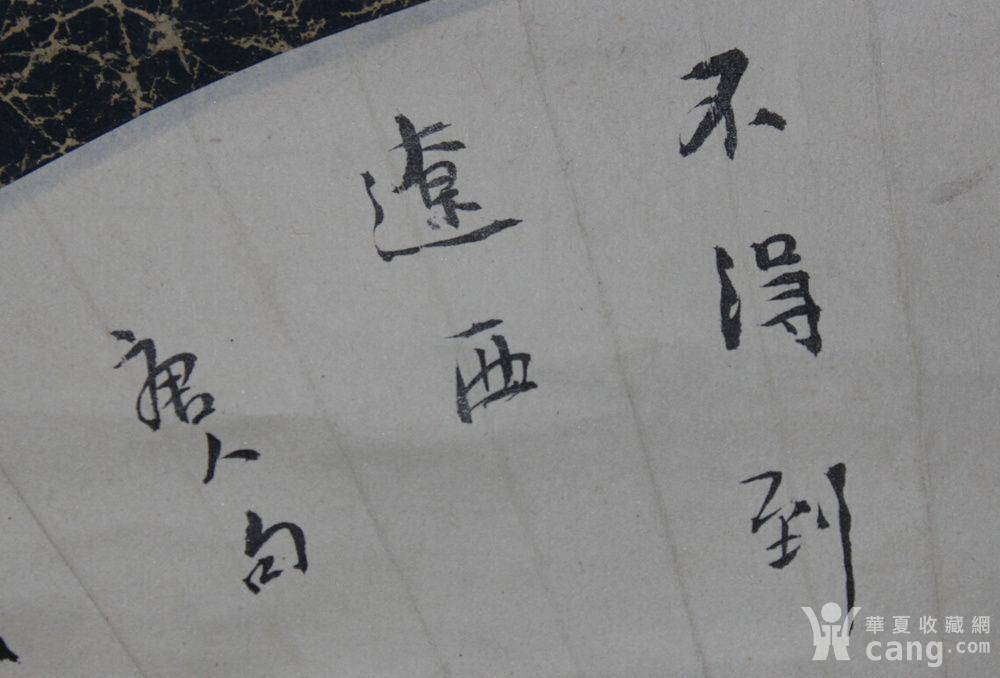 不得到
遼西
唐人句
華夏收藏網
cang.com